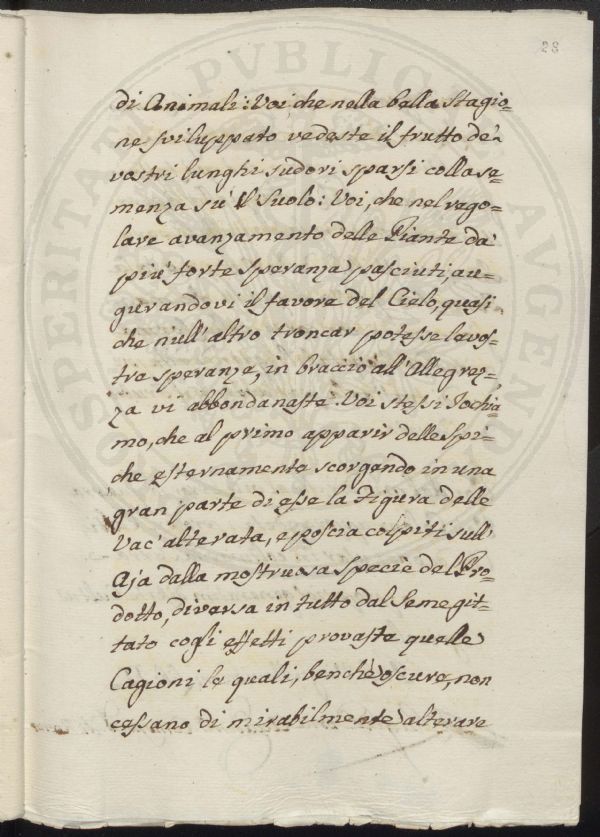 28
di Animali: Voi, che nella bella Stagio=
ne sviluppato vedeste il frutto de'
vostri lunghi sudori sparsi colla se=
menza sù 'l Suolo: Voi, che nel rego=
lare avanzamento delle Piante da
più forte speranza pasciuti, au=
gurandovi il favore del Cielo, quasi
che niùll' altro troncar potesse la vos=
tra speranza, in braccio all' Allegrez=
za vi abbondanaste. Voi stessi Io chia
mo, che al primo apparir delle Spi=
che esternamente scorgendo in una
gran parte di esse la Figura delle
Vac' alterata, e poscia colpiti sull'
Aja dalla mostruosa specie del Pro=
dotto, diversa in tutto dal Seme git=
tato cogli effetti provaste quelle
Cagioni le quali, benchè oscure, non
cessano di mirabilmente alterare
PROSPERITATI PUBLICAE AUGENDAE